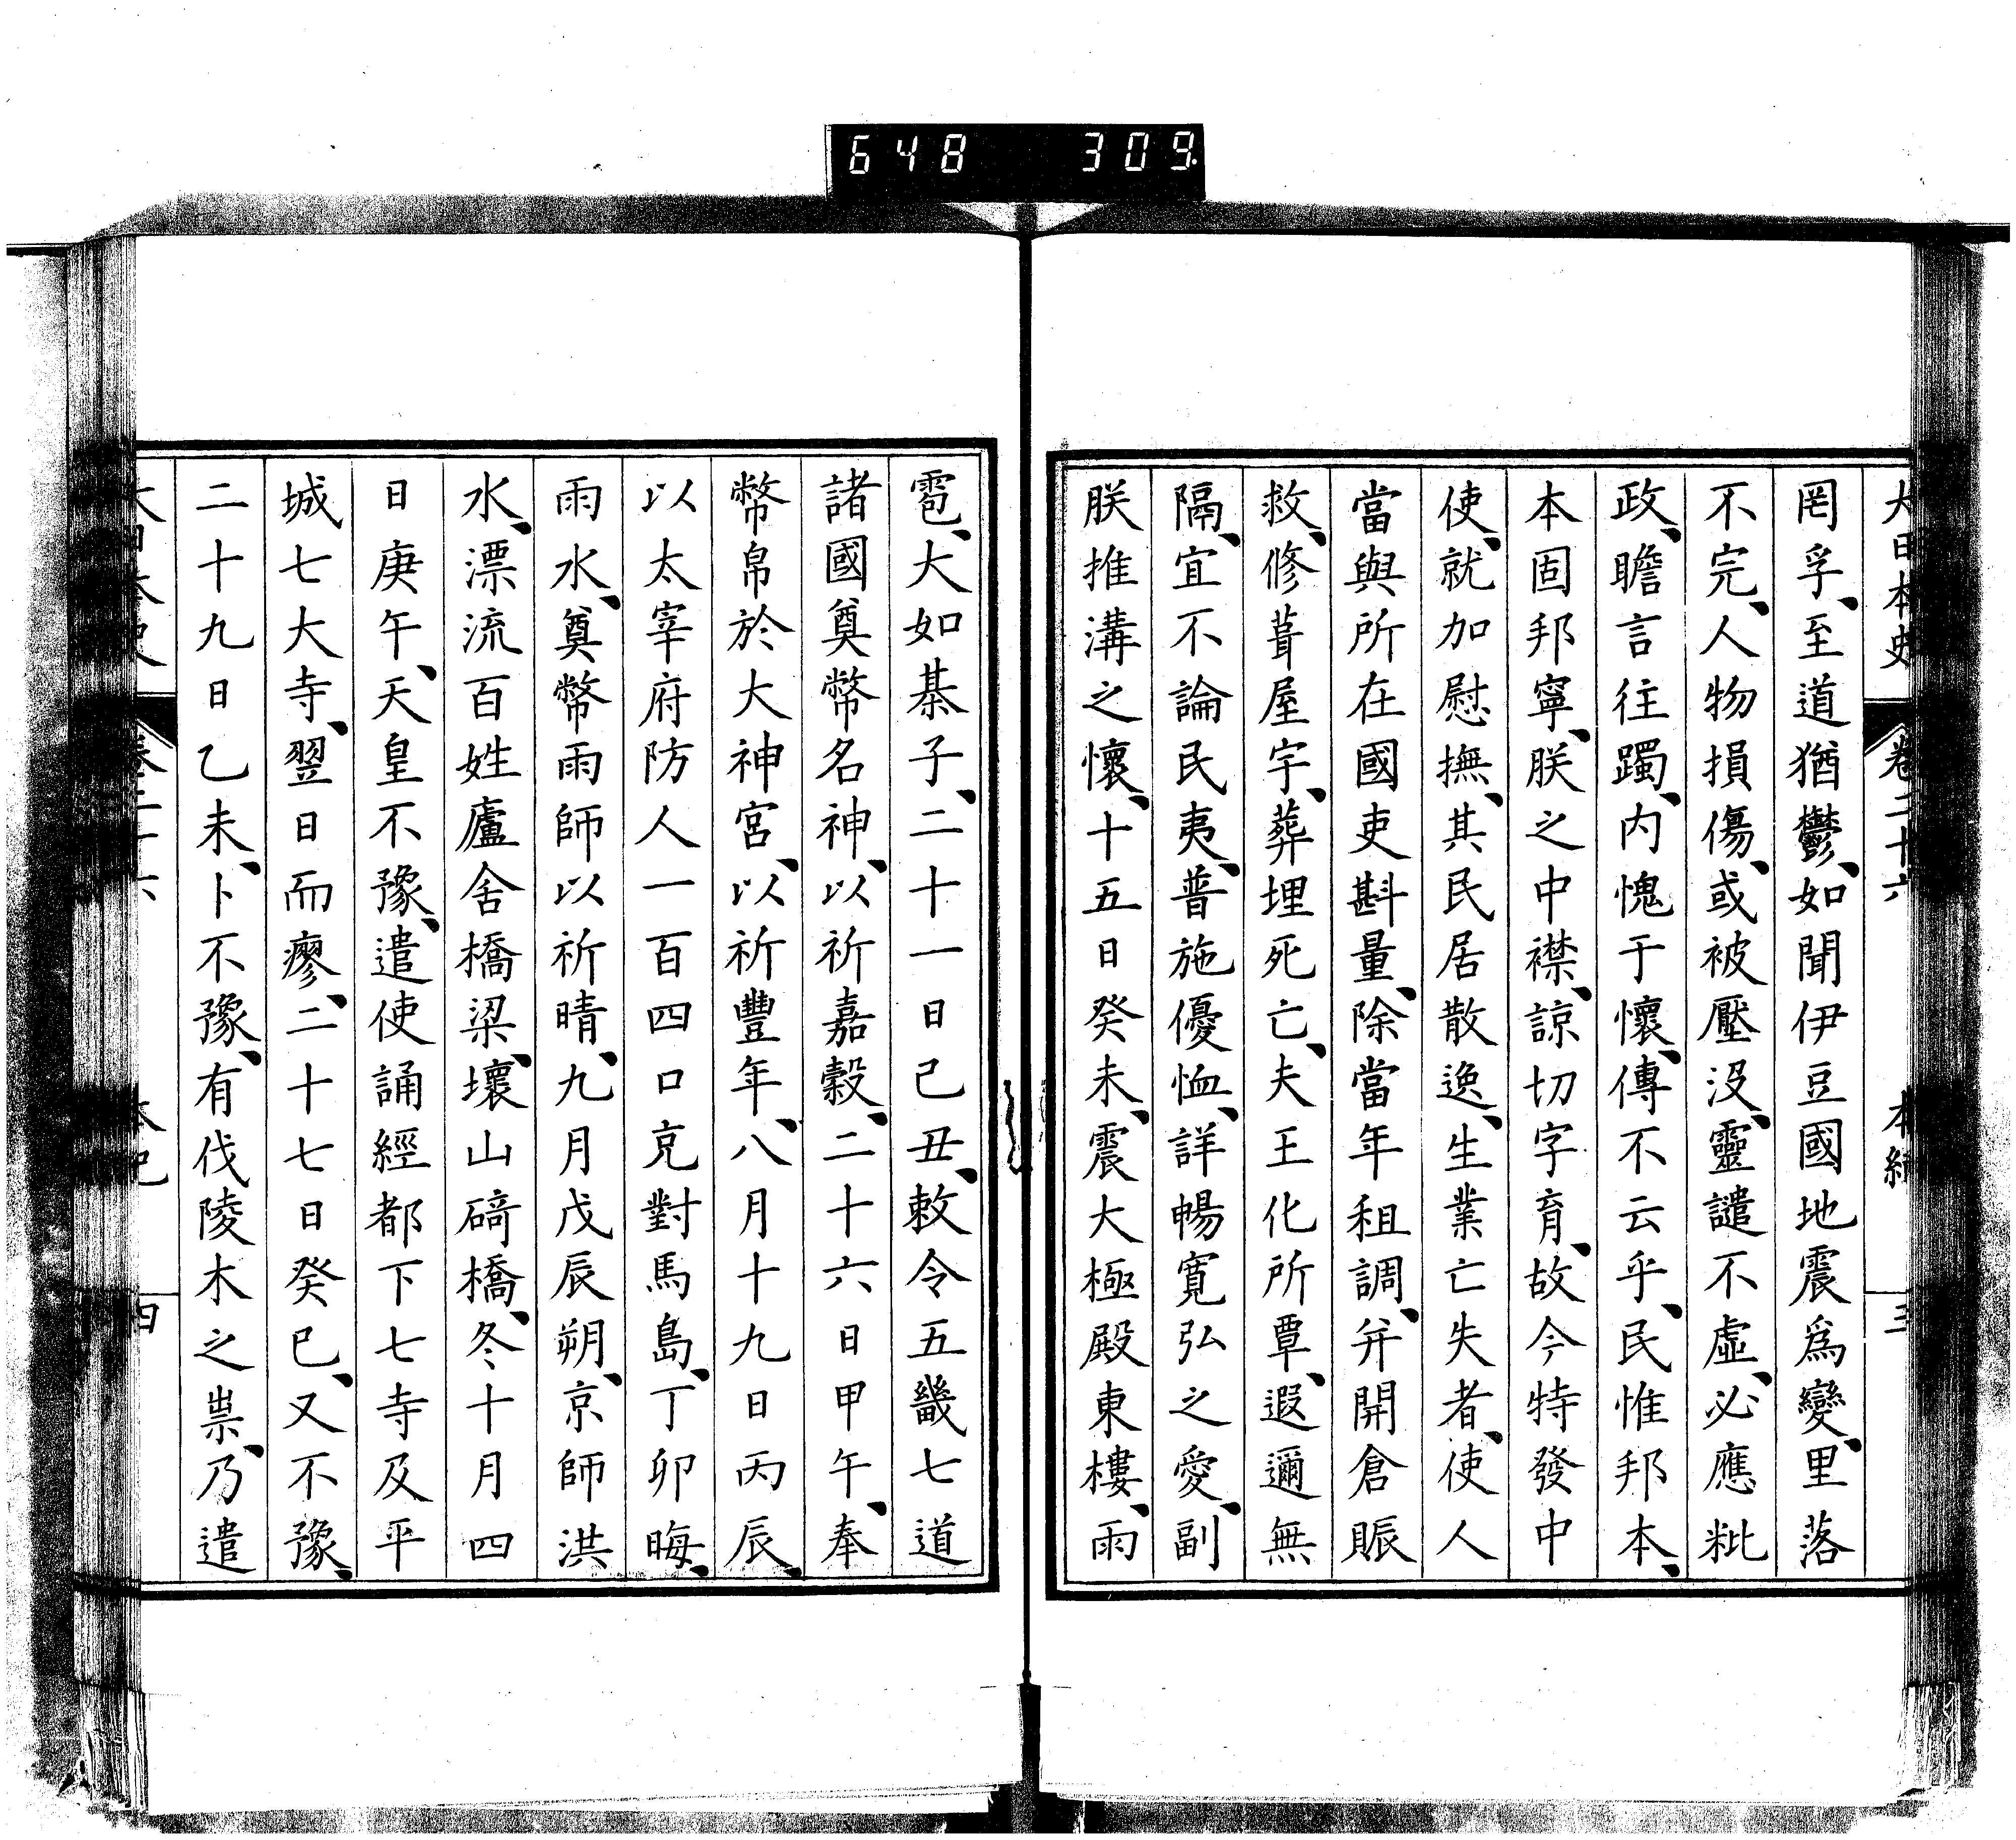 648 309.
大日本史 卷二十六 本紀 三
罔孚、至道猶鬱、如聞伊豆國地震爲變、里落
不完、人物損傷、或被壓沒、靈譴不虛、必應粃
政、瞻言往躅、内愧于懷、傳不云乎、民惟邦本、
本固邦寧、朕之中襟、諒切字育、故今特發中
使、就加慰撫、其民居散逸、生業亡失者、使人
當與所在國吏斟量、除當年租調、并開倉賑
救、修葺屋宇、葬埋死亡、夫王化所覃、遐邇無
隔、宜不論民夷、普施優恤、詳暢寬弘之愛、副
朕推溝之懷、十五日癸未、震大極殿東樓、雨
雹、大如棊子、二十一日己丑、敕令五畿七道
諸國奠幣名神、以祈嘉穀、二十六日甲午、奉
幣帛於大神宮、以祈豐年、八月十九日丙辰、
以太宰府防人一百四口充對馬島、丁卯晦、
雨水、奠幣雨師以祈晴、九月戊辰朔、京師洪
水、漂流百姓廬舍橋梁、壞山碕橋、冬十月四
日庚午、天皇不豫、遣使誦經都下七寺及平
城七大寺、翌日而瘳、二十七日癸巳、又不豫、
二十九日乙未、卜不豫、有伐陵木之祟、乃遣
大日本史 卷二十六 本紀 四